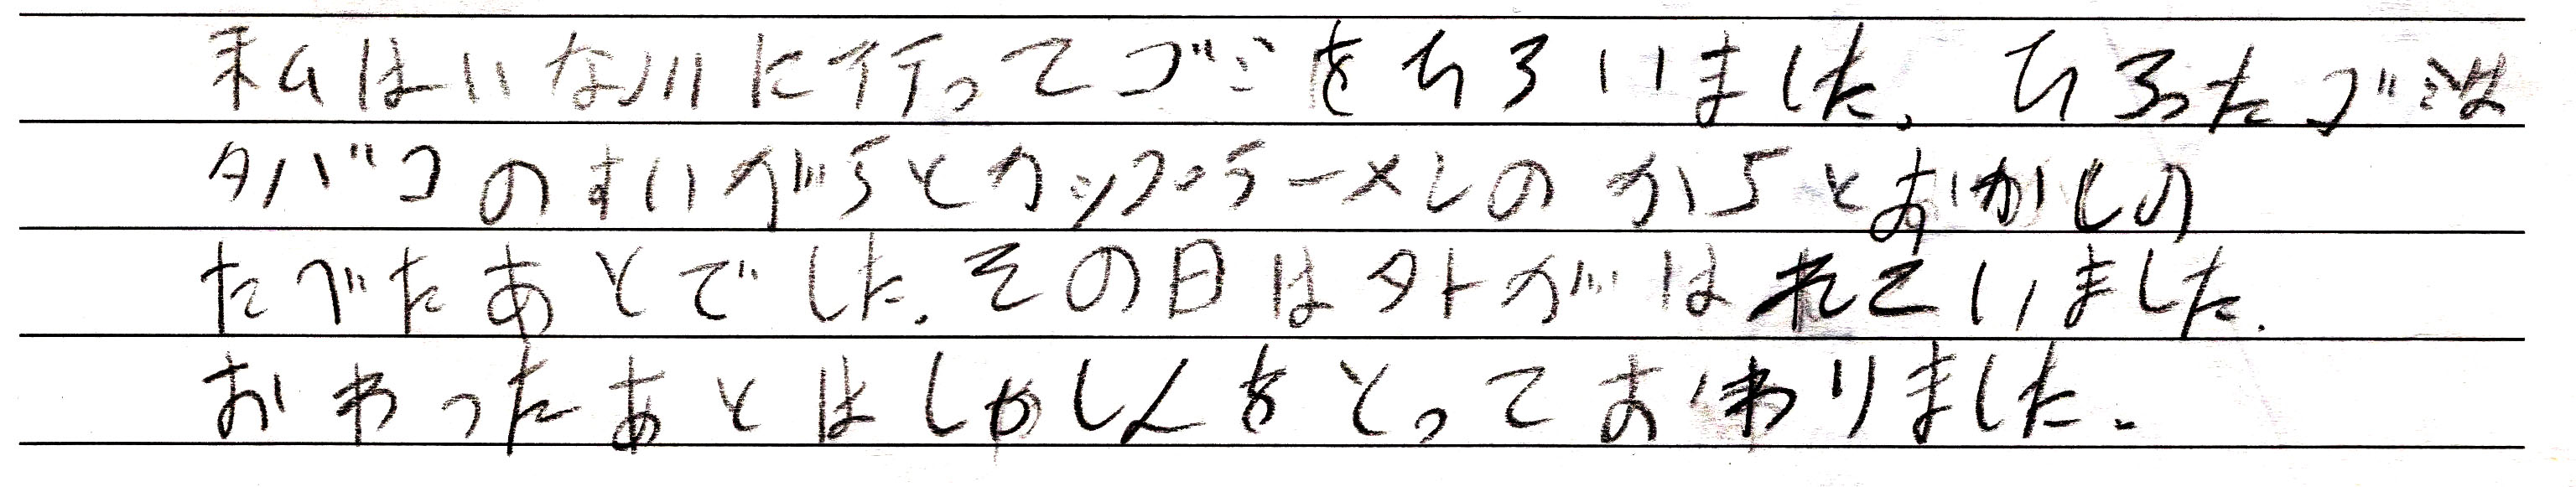 私はいな川に行ってゴミをひろいました。ひろったゴミは
タバコのすいがらとカップラーメンのからとおかしの
たべたあとでした。その日は外がはれていました。
おわったあとはしゃしんをとっておわりました。